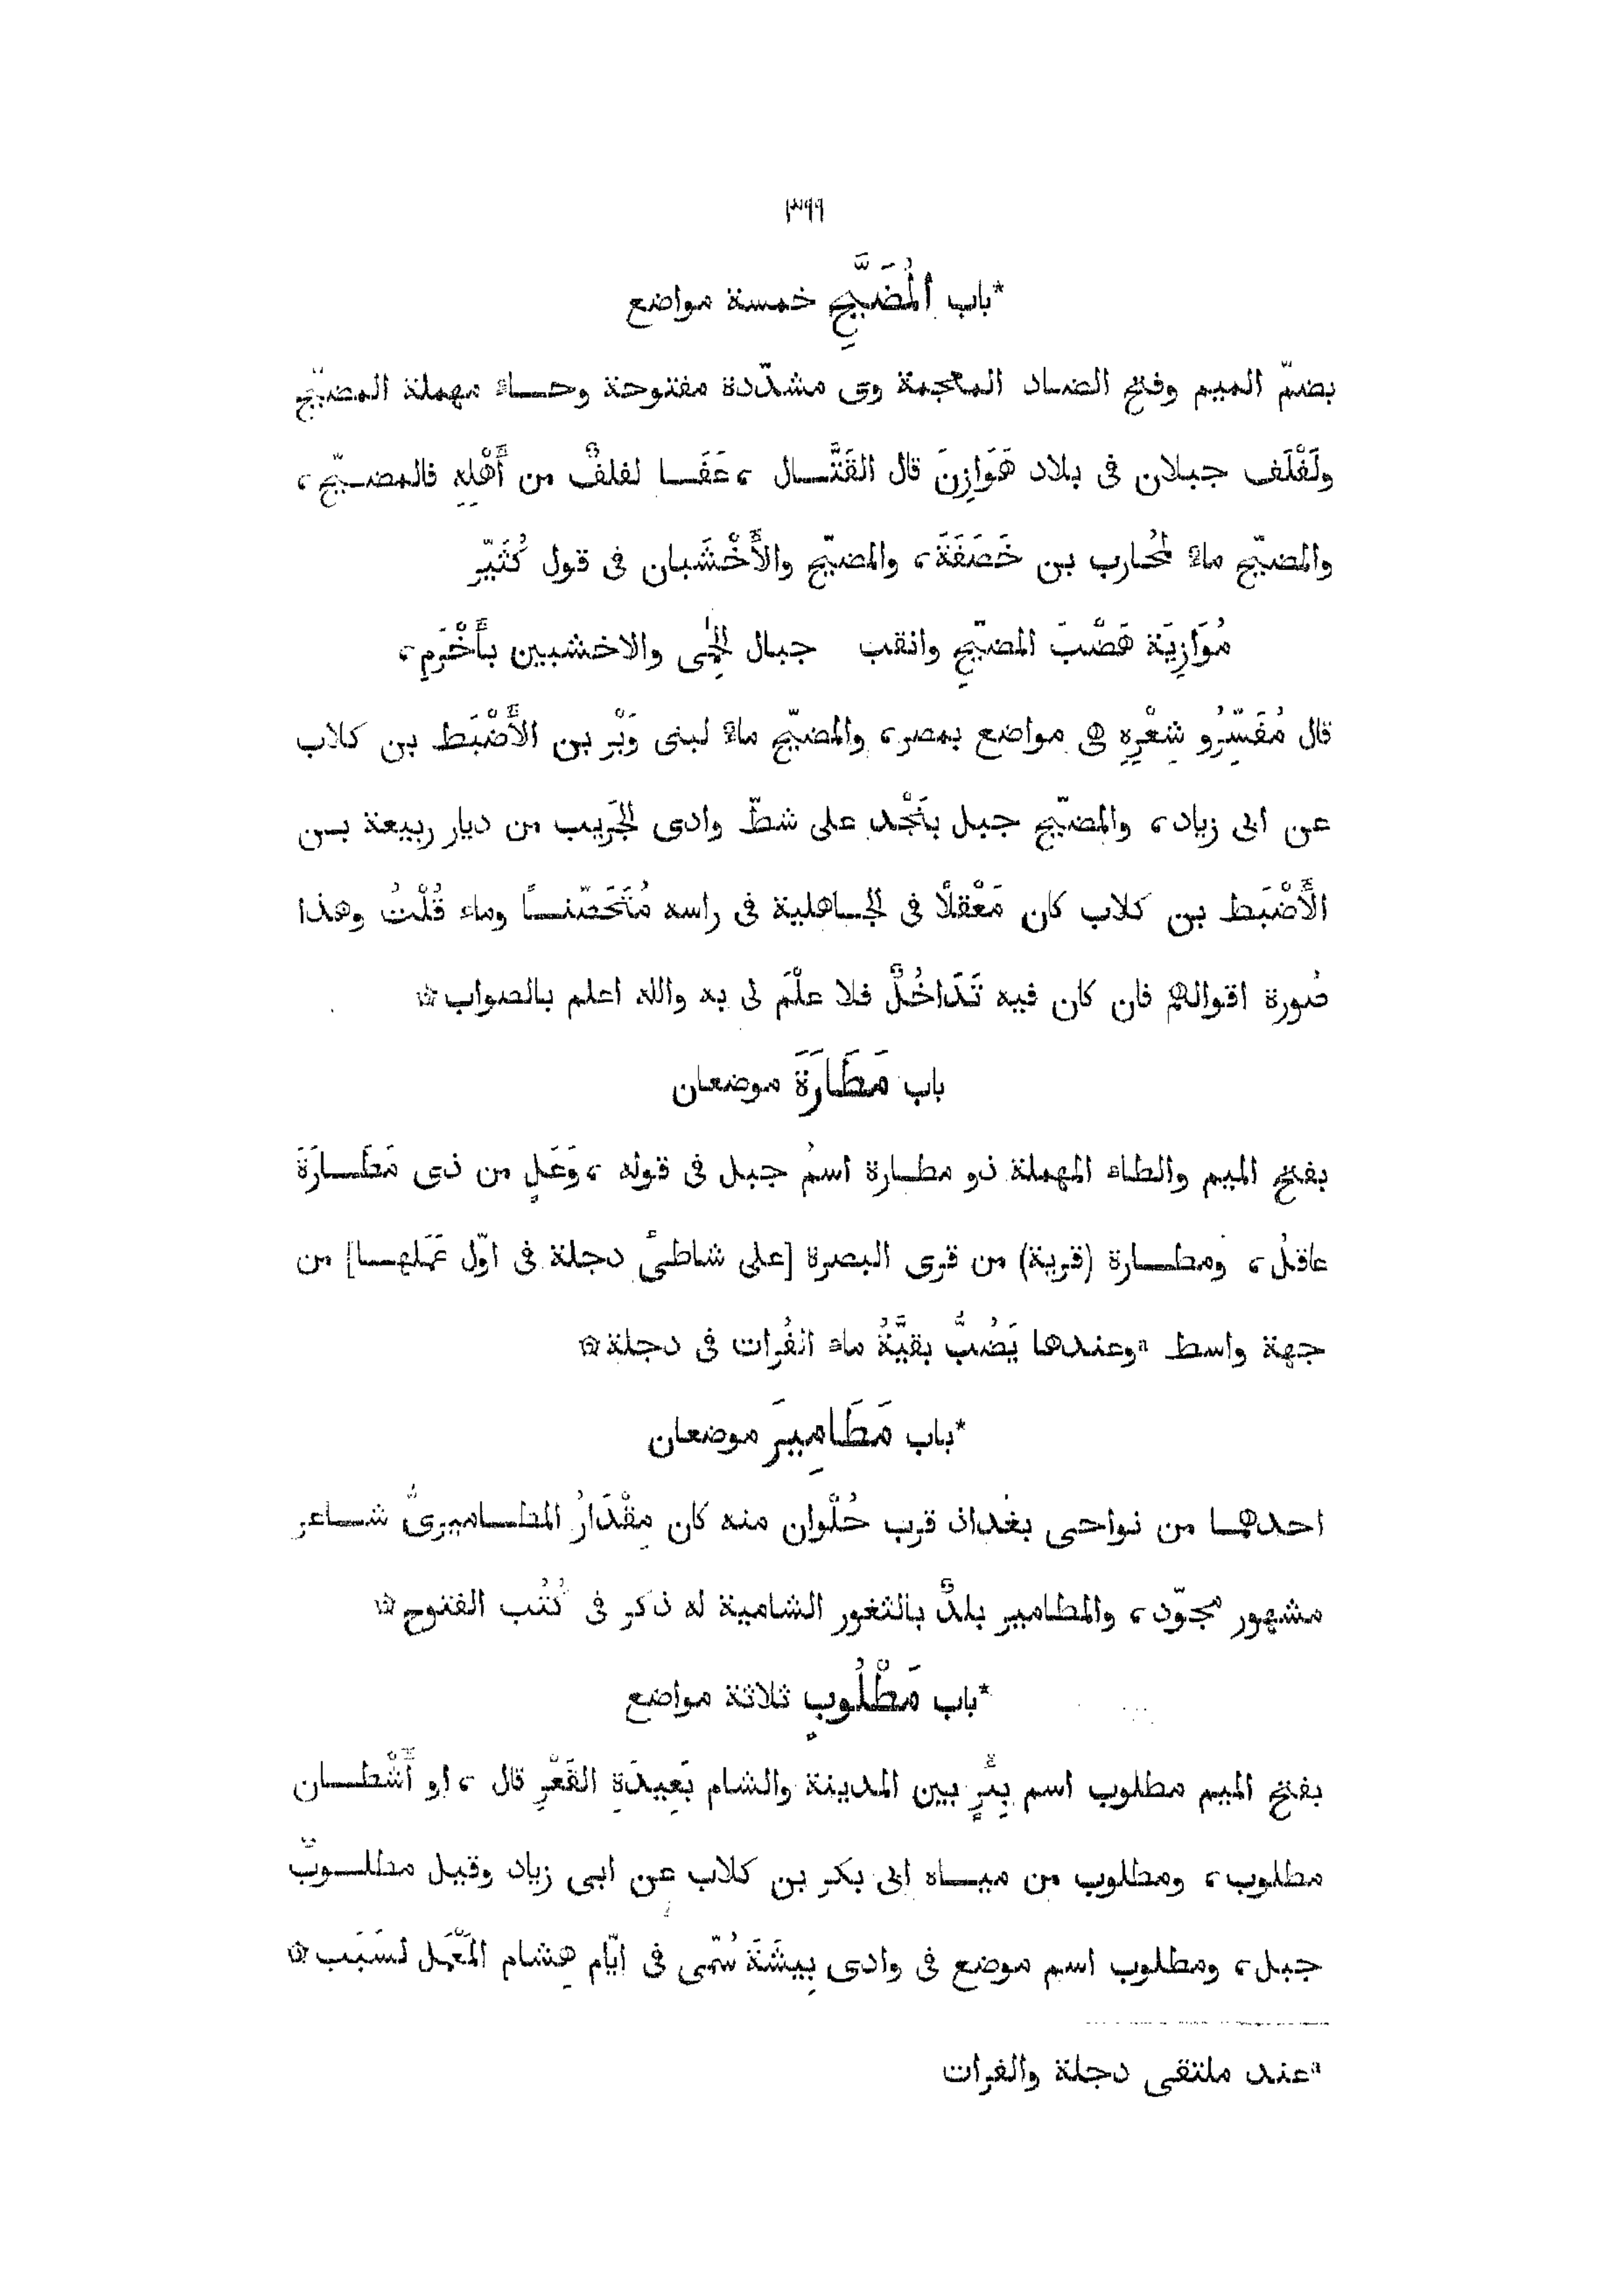 ٣٩٩
*باب المُضَبَّحِ خمسة مواضع
بضمّ الميم وفتح الضاد المعجمة وى مشدّدة مفتوحة وحاء مهملة المضيّح
ولَفْلَف جبلان فى بلاد هَوَازِنَ قال القَتَّال ، عَفَا لفلفٌ من أَهْلِهِ فالمضيّح ،
والمضيّح ماء لمُحارب بن خَصَفَةَ ، والمضيّح والأَخْشَبان فى قول كُثَيّر
مُوَازِيَة هَضْبَ المضيّحِ وانقب جبال الحِمَى والاخشبين بأَخْرَمِ ،
قال مُفَسِّرُو شِعْرِهِ هى مواضع بمصر ، والمضيّح ماء لبنى وَبْر بن الأَضْبَط بن كلاب
عن ابى زياد ، والمضيّح جبل بنَجْد على شطّ وادى الجَريب من ديار ربيعة بن
الأَضْبَط بن كلاب كان مَعْقلًا فى الجاهلية فى راسه مُتَحَصَّنًا وماء قُلْتُ وهذا
صُورة اقوالهم فان كان فيه تَدَاخُلٌ فلا علْمَ لى به والله اعلم بالصواب ۞
باب مَطَارَةَ موضعان
بفتح الميم والطاء المهملة ذو مطارة اسمُ جبل فى قوله ، وَعَلٍ من ذى مَطَارَةَ
عاقلُ ، ومطارة (قرية) من قرى البصرة [على شاطئ دجلة فى اوّل عَمَلها] من
جهة واسط ᵃوعندها يَصُبُّ بقيَّةُ ماء الفُرات فى دجلة ۞
*باب مَطَامِيرَ موضعان
احدهما من نواحى بغداذ قرب حُلْوان منه كان مِقْدَارُ المطاميرىُّ شاعر
مشهور مجوّد ، والمطامير بلدٌ بالثغور الشامية له ذكر فى كُتُب الفتوح ۞
*باب مَطْلُوبٍ ثلاثة مواضع
بفتح الميم مطلوب اسم بِئْرٍ بين المدينة والشام بَعِيدَةِ القَعْرِ قال ، او أَشْطان
مطلوب ، ومطلوب من مياه ابى بكر بن كلاب عن ابى زياد وقيل مطلوبٌ
جبل ، ومطلوب اسم موضع فى وادى بِيشَةَ سُمّى فى ايّام هِشام المَعْمَل لسَبَب ۞
ᵃعند ملتقى دجلة والفرات